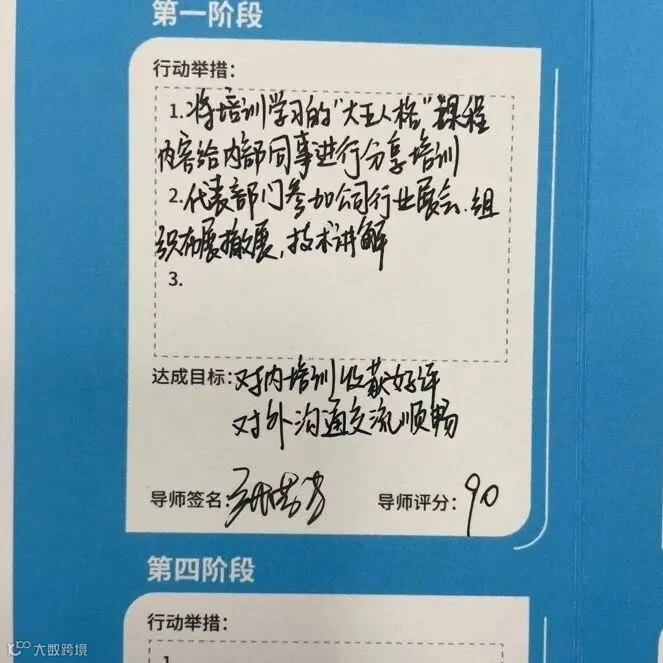 第一阶段
行动举措：
1.将培训学习的“大五人格”课程
内容给内部同事进行分享培训
2.代表部门参加公司行业展会、组
织布展撤展，技术讲解
3.
达成目标：对内培训收获好评
对外沟通交流顺畅
导师签名：
导师评分：90
第四阶段
行动举措：
1.
大数跨境